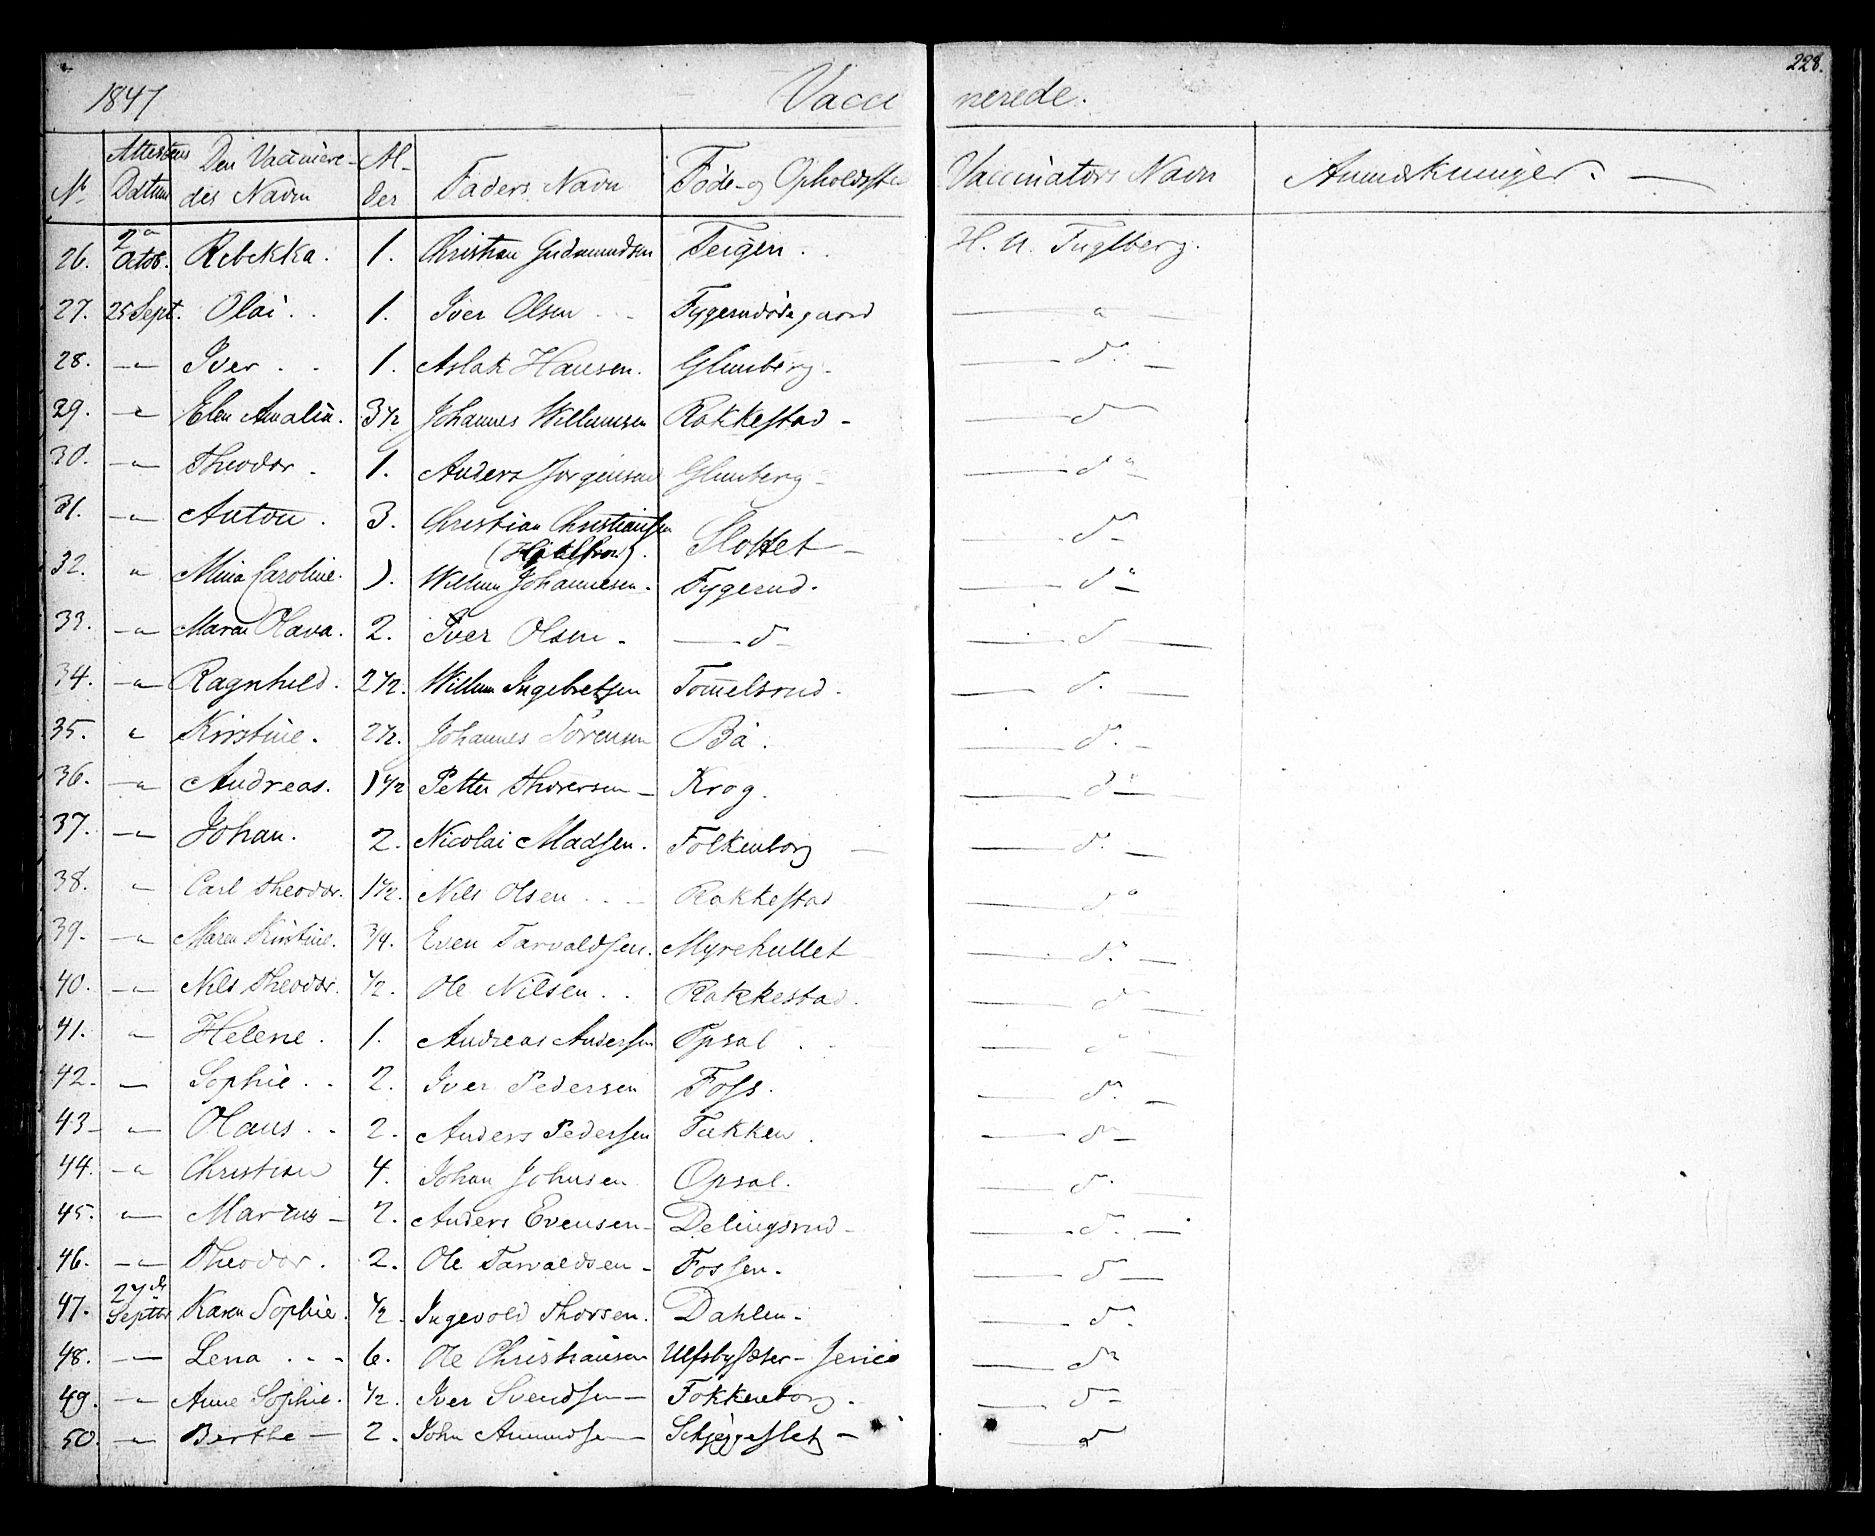 228.
1847 Vaccinerede.
No Attestens Datum Den Vaccineredes Navn Alder Faders Navn Føde- og Opholdssted Vaccinators Navn Anmærkninger. —
26. 2den Octob. Rebekka. 1. Christian Gudmundsen Teigen. H. A. Fuglberg.
27. 25 Sept. Olai. 1. Iver Olsen Fygerudødegaard — " —
28. — " Iver. 1. Aslak Hansen. Glunberg. — do —
29. — " Elen Amalia. 3 1/2 Johannes Willumsen Rakkestad — — do
30. — " Theodor. 1. Anders Jørgensen Glunberg — — do
31. — " Anton. 3. Christian Christiansen Slottet — — do
32. " Mina Caroline. 1. Willum Johannesen. Fygerud. — do
33. — " Maren Olava. 2. Iver Olsen — do — — do —
34. — " Ragnhild. 2 1/2. Willum Ingebretsen Tomelsrud. — do —
35. " Kirstine. 2 1/2. Johannes Sørensen Bø. — do —
36. — " Andreas. 1 1/2 Petter Thoresen — Krog. — do —
37. — " Johan. 2. Nicolai Madsen. Folkenborg — — do —
38. " Carl Theodor. 1 1/2. Nils Olsen Rakkestad — do
39. — " Maren Kirstine. 3/4. Even Tarvaldsen. Myrehullet — do —
40. — " Nils Theodor. 1/2. Ole Nilsen. Rakkestad. — do
41. " Helene. 1. Andreas Andersen Opsal. — do
42. — Sophie. 2. Iver Pedersen Foss. — do —
43 — " Olaus. 2. Anders Pedersen Takken. — do —
44. — " Christian 4. Johan Johnsen Opsal. — do
45. " Marius — 2. Anders Evensen — Delingsrud — — do —
46. — " Theodor. 2. Ole Tarvaldsen — Fossen. — do —
47. 27de Septbr Karen Sophie. 1/2. Ingevold Thorsen. Dahlen. — do
48. — " Lena 6. Ole Christiansen Ulfsbysæter — — do
49. — " Anne Sophie. 1/2. Iver Svendsen — Fokkenborg. — do —
50. — " Berthe — 2. John Amundsen — Schjeggeslet — — do